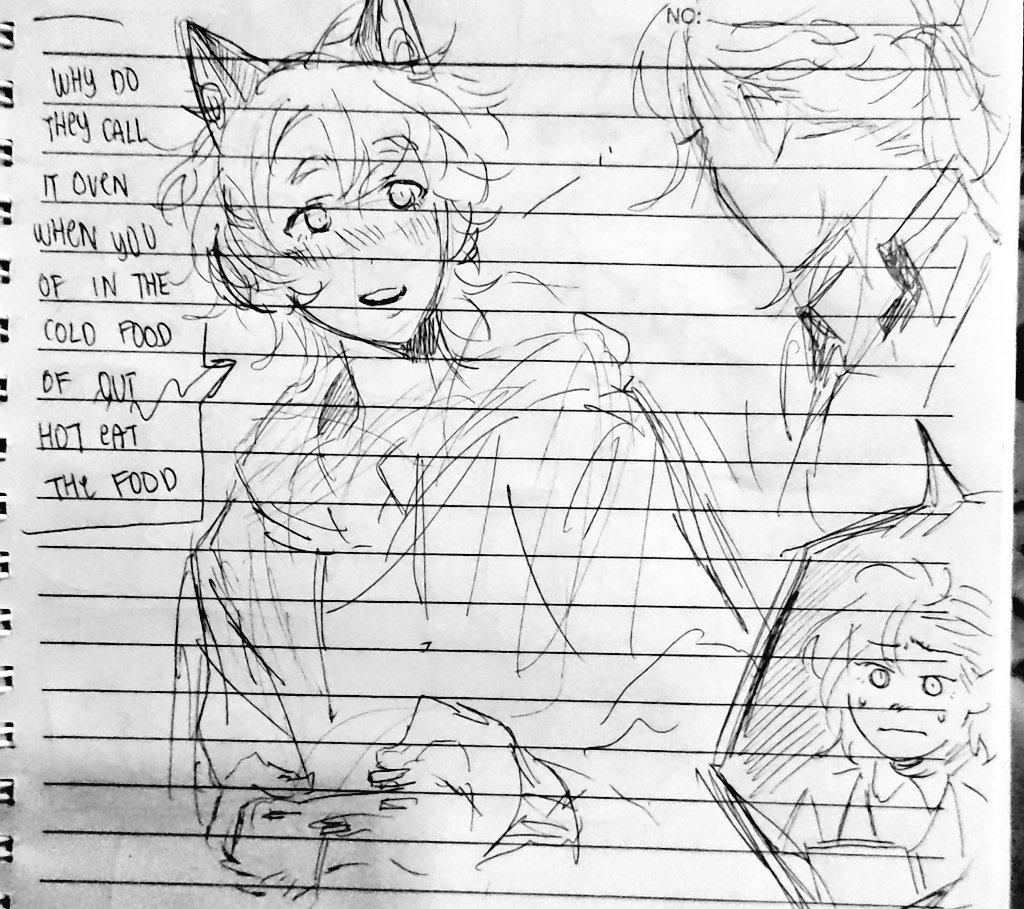 NO:
WHY DO
THEY CALL
IT OVEN
WHEN YOU
OF IN THE
COLD FOOD
OF OUT
HOT EAT
THE FOOD